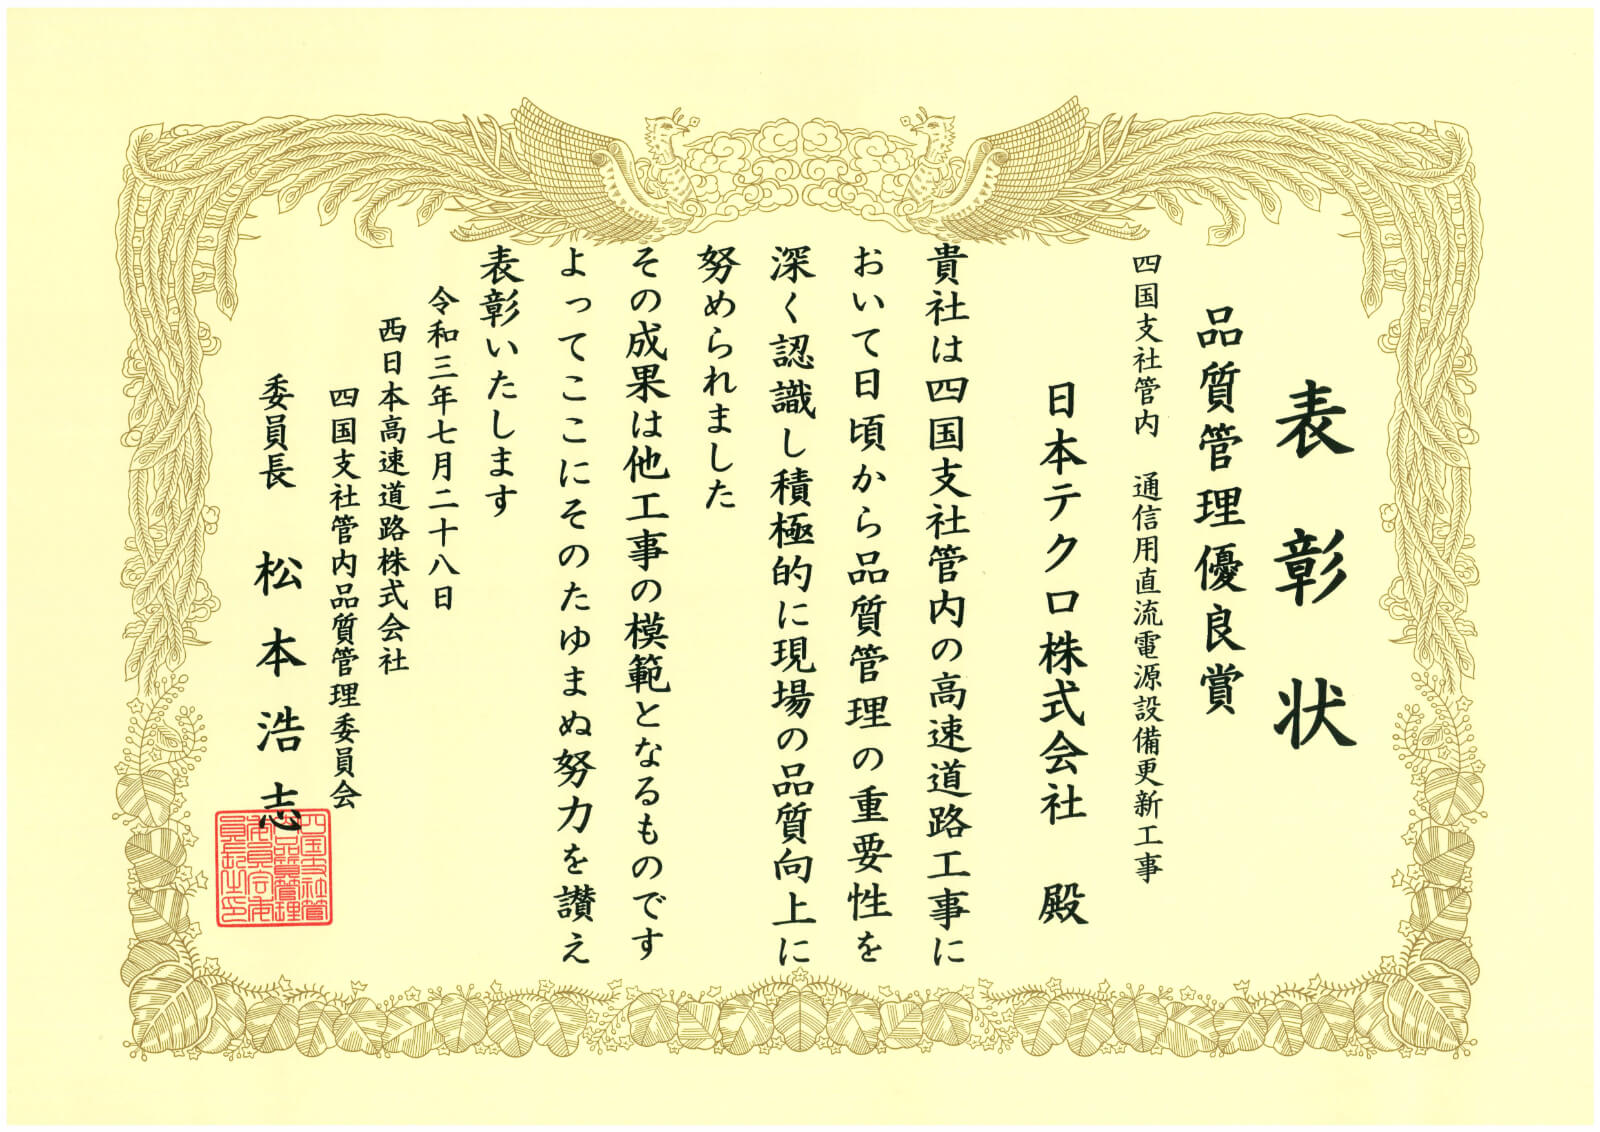 表彰状
品質管理優良賞
四国支社管内　通信用直流電源設備更新工事
日本テクロ株式会社　殿
貴社は四国支社管内の高速道路工事に
おいて日頃から品質管理の重要性を
深く認識し積極的に現場の品質向上に
努められました
その成果は他工事の模範となるものです
よってここにそのたゆまぬ努力を讃え
表彰いたします
令和三年七月二十八日
西日本高速道路株式会社
四国支社管内品質管理委員会
委員長　松本浩志
四国支社管
内品質管理
委員会委
員長之印